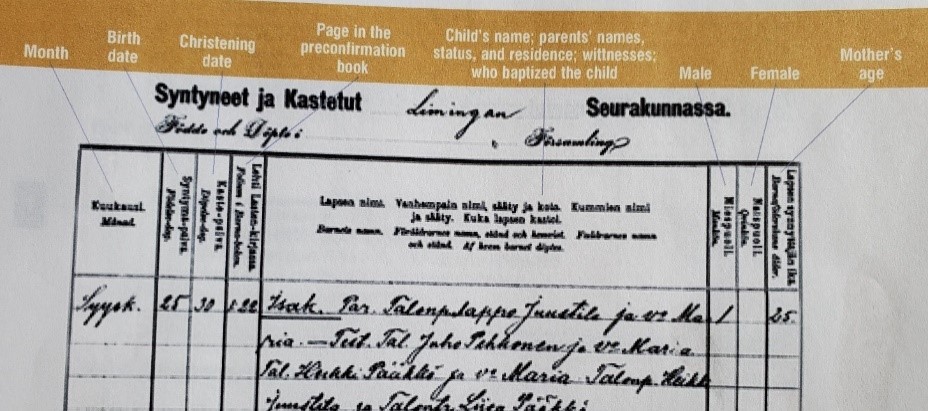 Month
Birth date
Christening date
Page in the preconfirmation book
Child's name; parents' names, status, and residence; wittnesses; who baptized the child
Male
Female
Mother's age
Syntyneet ja Kastetut Limingan Seurakunnassa.
Födde och Döpte i Församling
Kuukausi.
Månad.
Syntymä-päivä.
Födelse-dag.
Kaste-päivä.
Döpelse-dag.
Lehti Lasten-kirjassa.
Folium i Barna-boken.
Lapsen nimi. Vanhempain nimi, sääty ja koto. Kummien nimi
ja sääty. Kuka lapsen kastoi.
Barnets namn. Föräldrarnes namn, stånd och hemvist. Faddrarnes namn
och stånd. Af hvem barnet döptes.
Miespuoli.
Mankön.
Naispuoli.
Qvinkön.
Lapsen synnyttäjän ikä.
Barnaföderskans ålder.
Syysk. 25 30 522 Isak. Par. Talonp. Jappo Juustila ja vo Ma 1 25.
ria. — Test. Tal. Juho Pehkonen ja vo Maria
Tal. Heikki Pääkkö ja vo Maria Talonp. Heikk
Juustila ja Talontr. Liisa Pääkkö